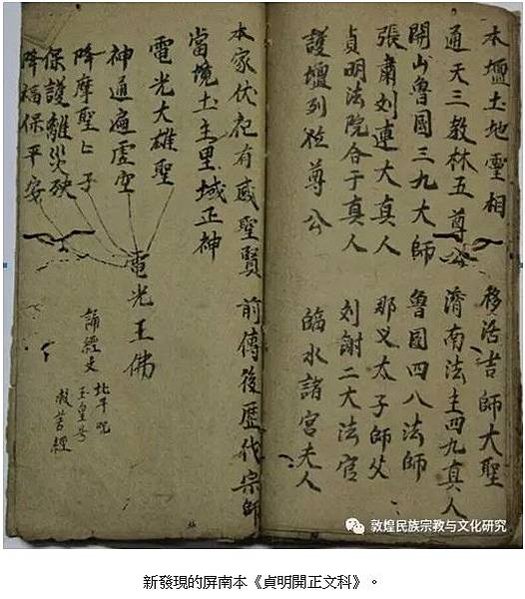 本壇土地靈相 移活吉師大聖
通天三教林五尊公 濟南法主四九真人
開山魯國三九大師 魯國四八法師
張蕭刘連大真人 那叉太子師父
貞明法院合于真人 刘謝二大法官
護壇列位尊公 臨水諸宮夫人
本家伏祀有感聖賢 前傳後歷代宗師
當境土主里域正神
電光大雄聖
神通遍虛空
降摩聖匕子
保護離災殃
降福保平安
電光王佛
誦經文
北斗咒
玉皇号
救苦經
敦煌民族宗教与文化研究
新發現的屏南本《貞明開正文科》。